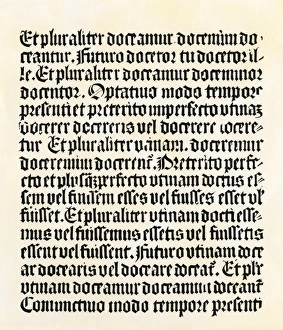 Et pluraliter doceamur doceminī do-
ceantur. Futuro docetor tu docetor il-
le. Et pluraliter doceamur doceminor
docentor. Optatiuo modo tempore
presenti et preterito imperfecto vtinaʒ
docerer docereris vel docerere docere-
tur Et pluraliter vtinam doceremur
doceremini docerent̄. Preterito perfe-
cto et plusq̄ʒperfecto vtinam doctus es-
sem vel fuissem esses vel fuisses esset vl̓
fuisset. Et pluraliter vtinam docti esse-
mus vel fuissemus essetis vel fuissetis
essent vel fuissent. Futuro vtinam doce
ar docearis vel doceare doceat̄. Et plr̄
vtinam doceamur doceamini doceant̄
Coniunctiuo modo tempore presenti